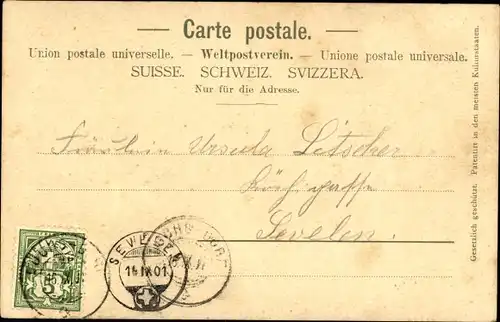 Carte postale.
Union postale universelle. — Weltpostverein. — Unione postale universale.
SUISSE. SCHWEIZ. SVIZZERA.
Nur für die Adresse.
Fräulein Ursula Litscher
Sevelen.
Gesetzlich geschützt. Patentirt in den meisten Kulturstaaten.
5
SEVELEN
14.IX.01